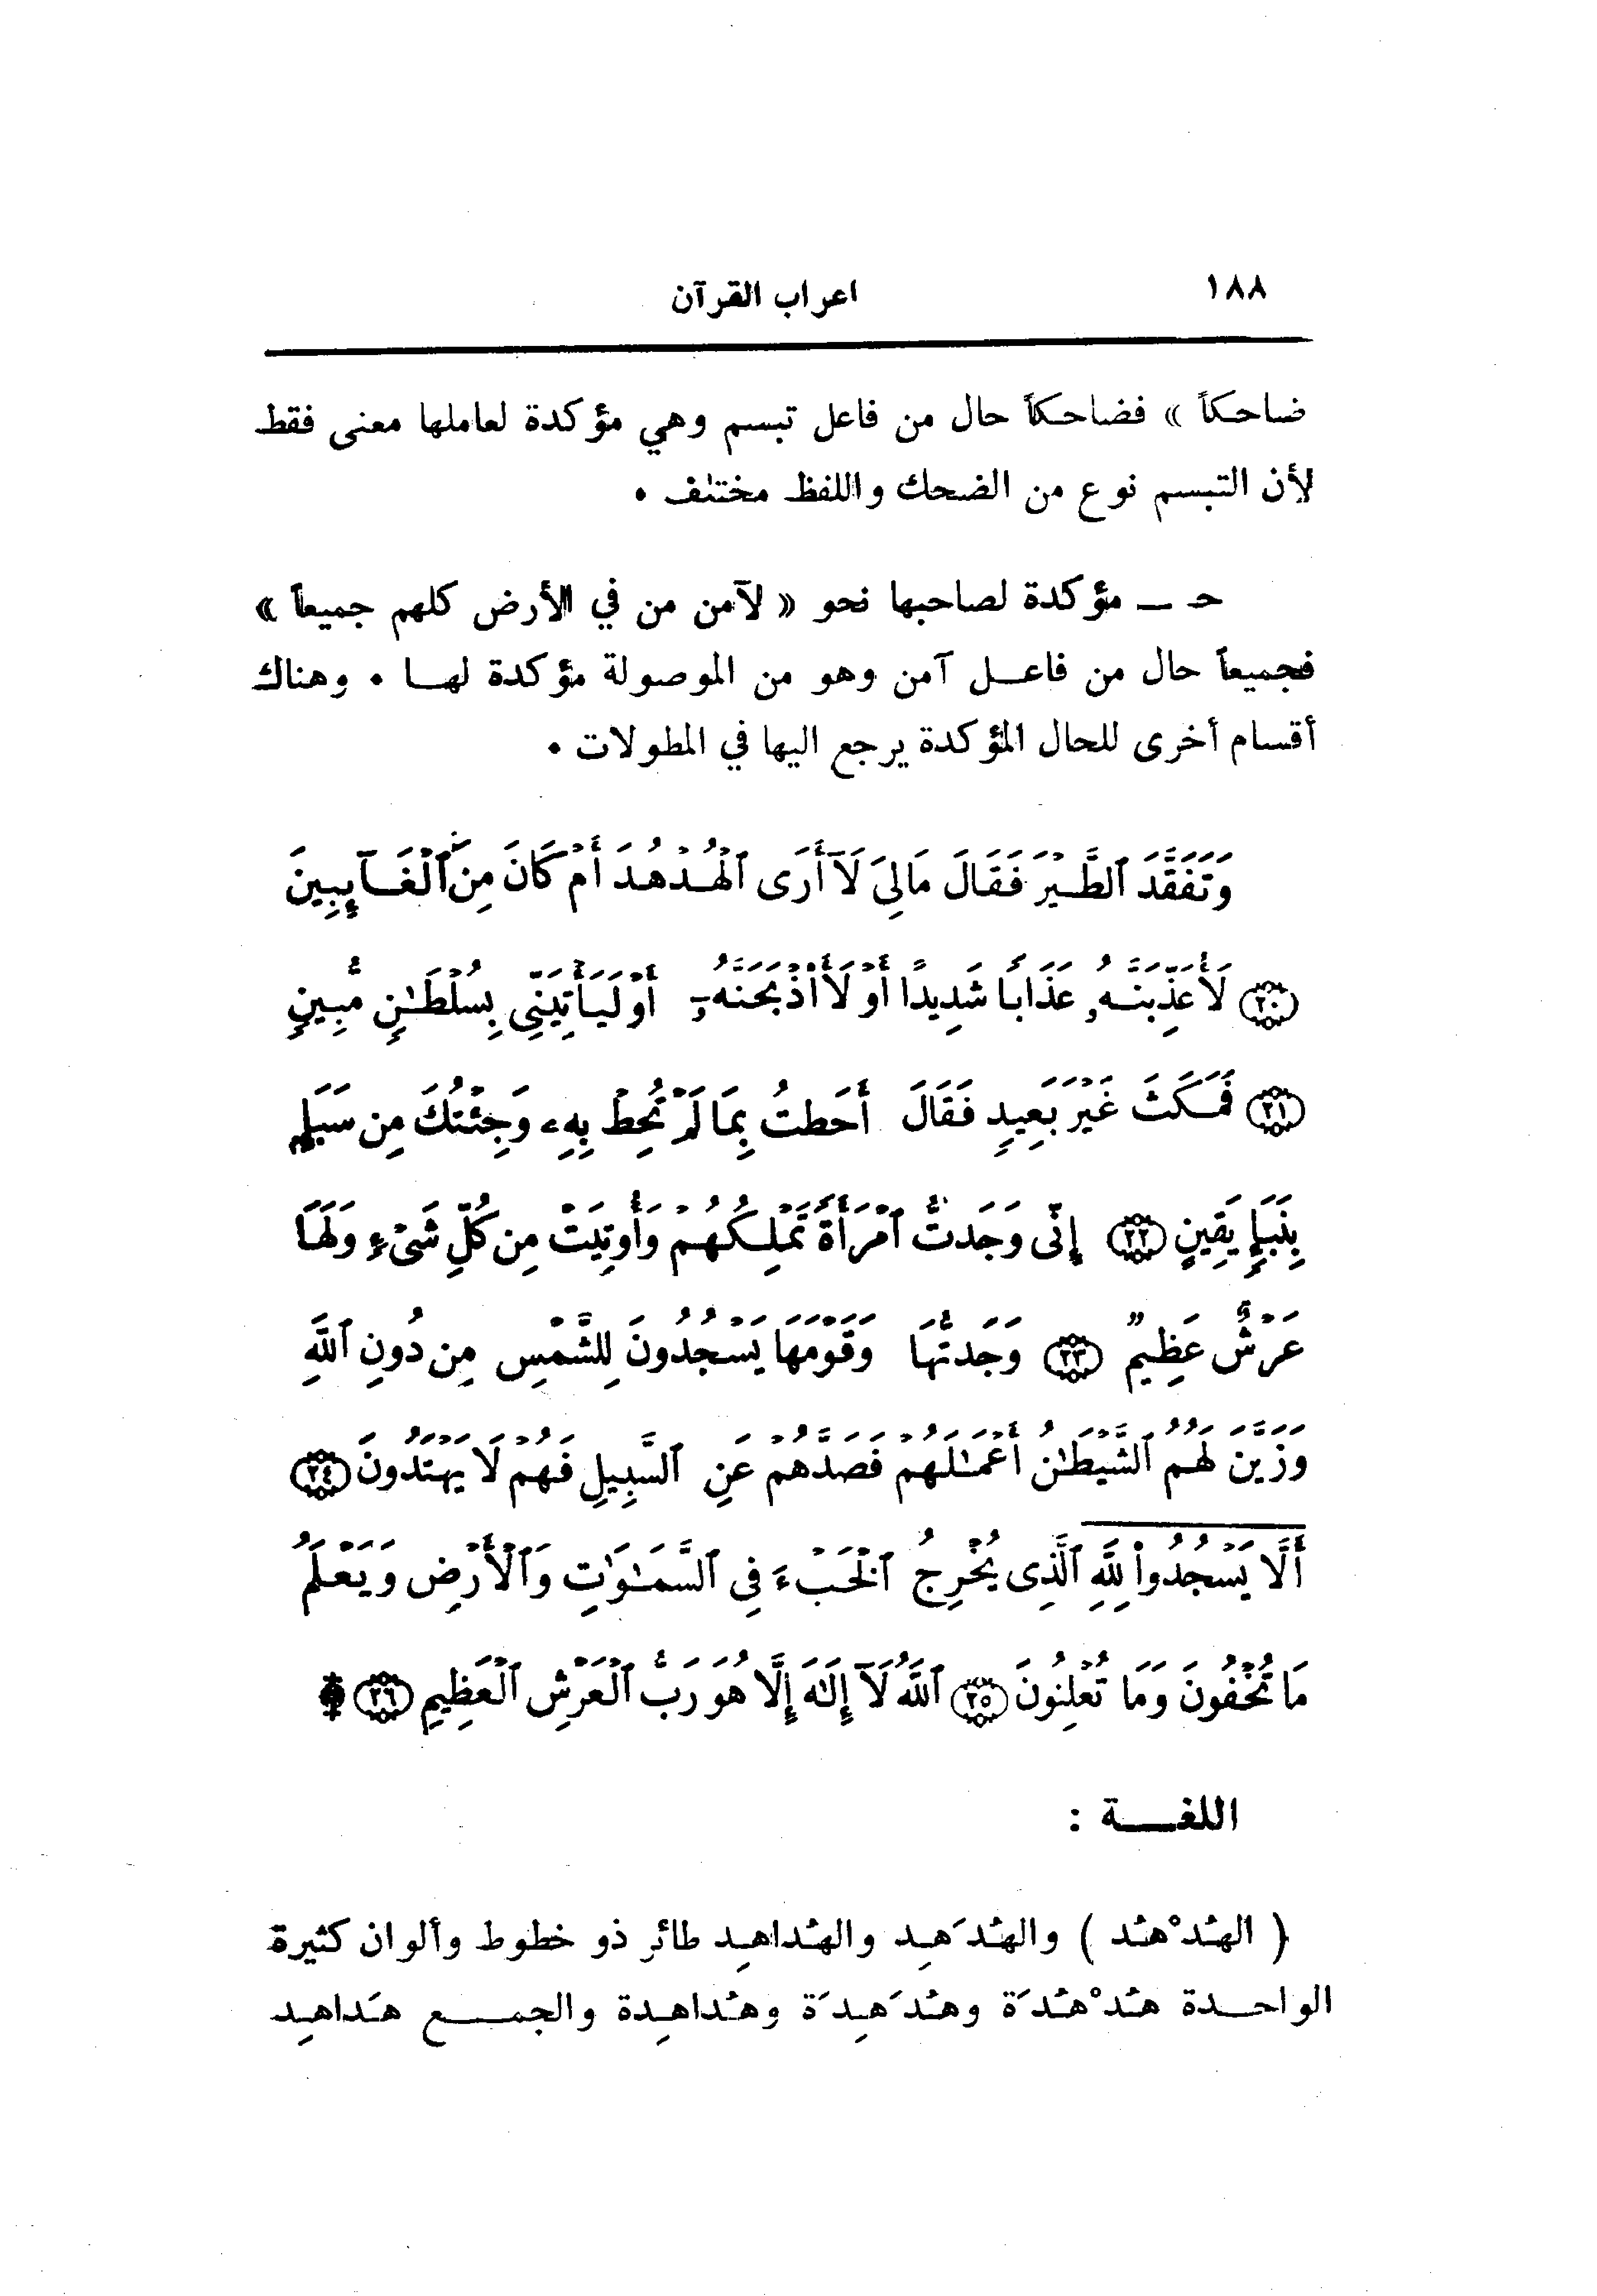 ١٨٨ اعراب القرآن
ضاحكاً » فضاحكاً حال من فاعل تبسم وهي مؤكدة لعاملها معنى فقط
لأن التبسم نوع من الضحك واللفظ مختلف .
حـ ــ مؤكدة لصاحبها نحو « لآمن من في الأرض كلهم جميعاً »
فجميعاً حال من فاعـل آمن وهو من الموصولة مؤكدة لهـا . وهناك
أقسام أخرى للحال المؤكدة يرجع اليها في المطولات .
وَتَفَقَّدَ ٱلطَّيْرَ فَقَالَ مَالِىَ لَآ أَرَى ٱلْهُدْهُدَ أَمْ كَانَ مِنَ ٱلْغَآئِبِينَ
(٢٠) لَأُعَذِّبَنَّهُۥ عَذَابًا شَدِيدًا أَوْ لَأَا۟ذْبَحَنَّهُۥٓ أَوْ لَيَأْتِيَنِّى بِسُلْطَٰنٍ مُّبِينٍ
(٢١) فَمَكَثَ غَيْرَ بَعِيدٍ فَقَالَ أَحَطتُ بِمَا لَمْ تُحِطْ بِهِۦ وَجِئْتُكَ مِن سَبَإٍۭ
بِنَبَإٍ يَقِينٍ (٢٢) إِنِّى وَجَدتُّ ٱمْرَأَةً تَمْلِكُهُمْ وَأُوتِيَتْ مِن كُلِّ شَىْءٍ وَلَهَا
عَرْشٌ عَظِيمٌ (٢٣) وَجَدتُّهَا وَقَوْمَهَا يَسْجُدُونَ لِلشَّمْسِ مِن دُونِ ٱللَّهِ
وَزَيَّنَ لَهُمُ ٱلشَّيْطَٰنُ أَعْمَٰلَهُمْ فَصَدَّهُمْ عَنِ ٱلسَّبِيلِ فَهُمْ لَا يَهْتَدُونَ (٢٤)
أَلَّا يَسْجُدُوا۟ لِلَّهِ ٱلَّذِى يُخْرِجُ ٱلْخَبْءَ فِى ٱلسَّمَٰوَٰتِ وَٱلْأَرْضِ وَيَعْلَمُ
مَا تُخْفُونَ وَمَا تُعْلِنُونَ (٢٥) ٱللَّهُ لَآ إِلَٰهَ إِلَّا هُوَ رَبُّ ٱلْعَرْشِ ٱلْعَظِيمِ (٢٦)
اللغــة :
( الهُدْهُد ) والهُدَهِد والهُداهِد طائر ذو خطوط وألوان كثيرة
الواحـدة هُدْهُدَة وهُدَهِدَة وهُداهِدة والجمـع هَداهِد